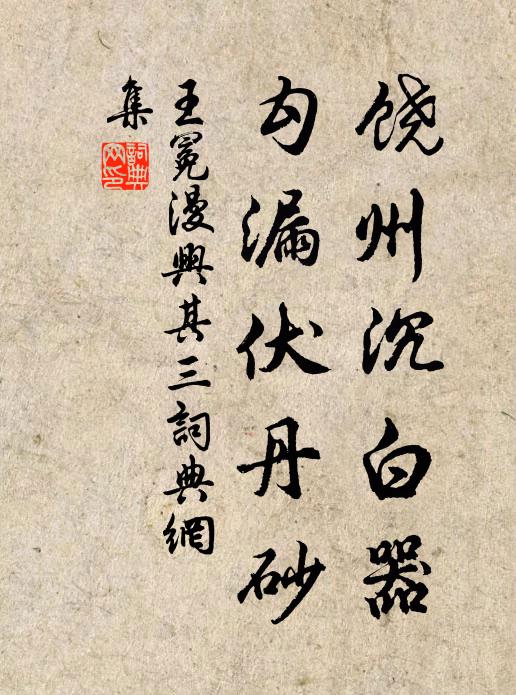 饶州沉白器
勾漏伏丹砂
王冕漫興其三詞典網
集
詞典網印